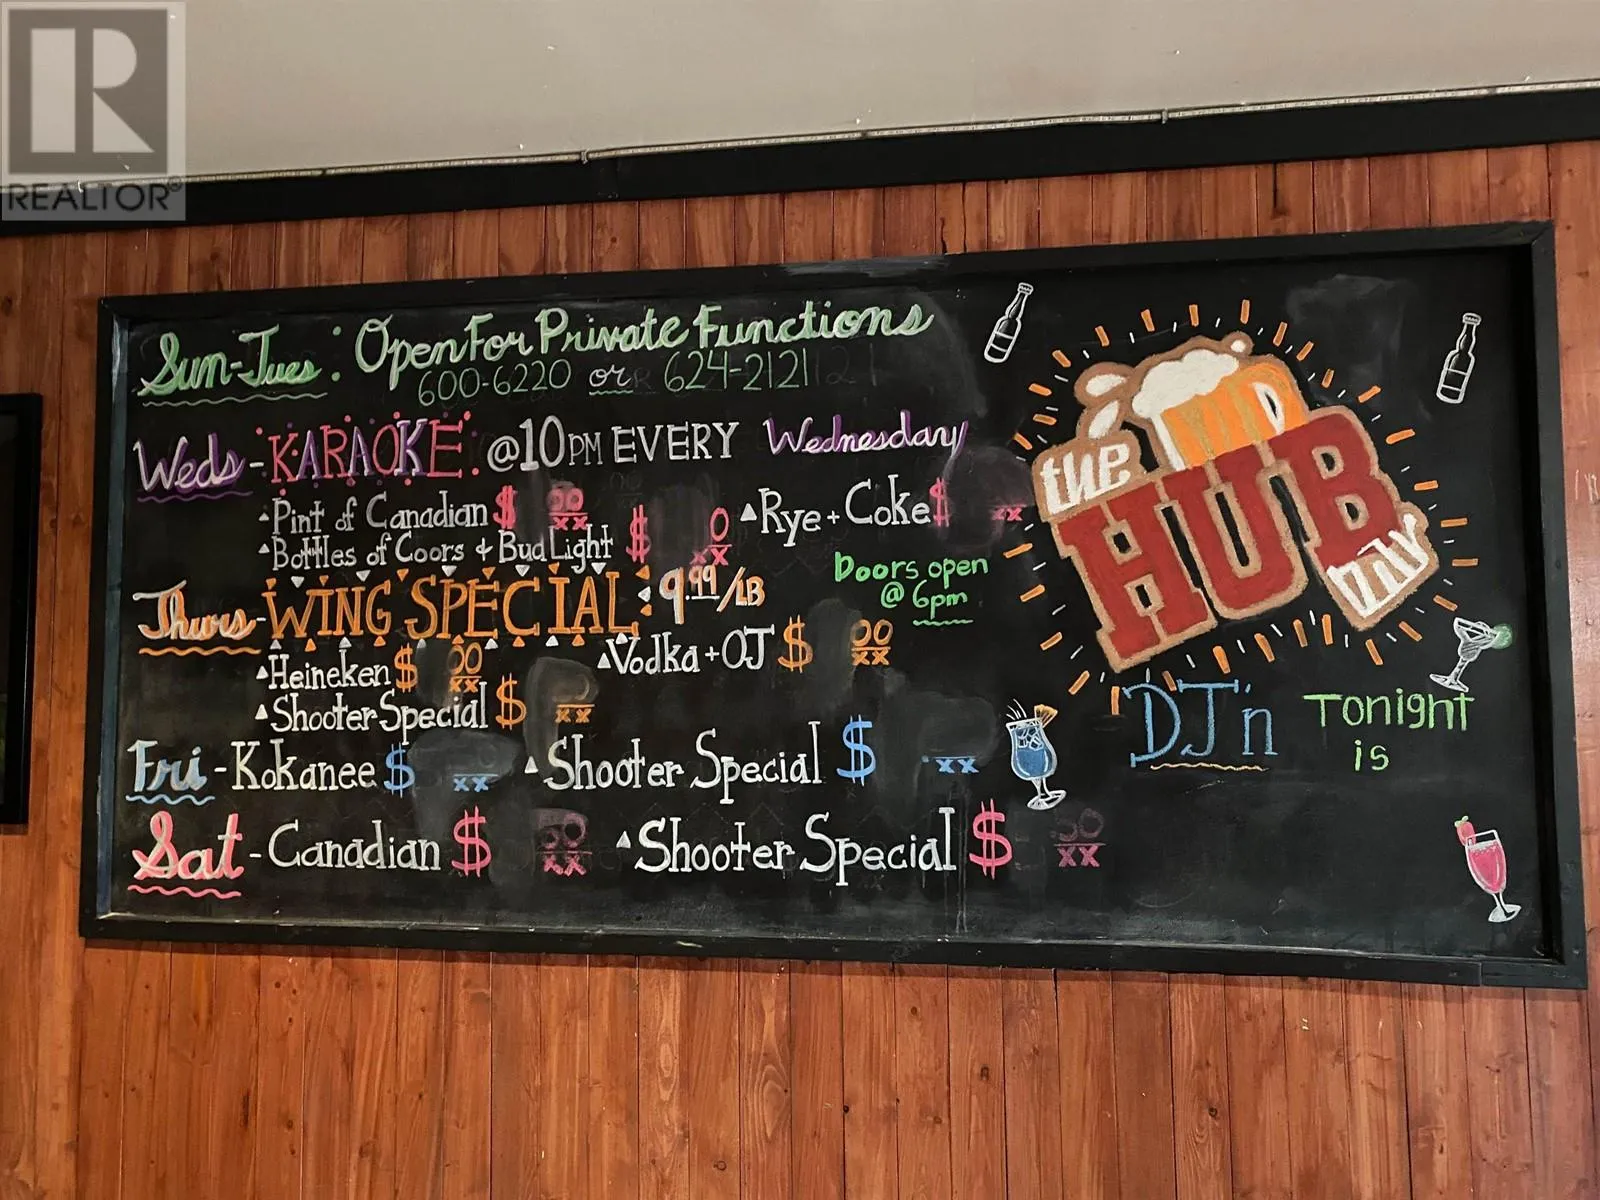 REALTOR®
Sun-Tues: Open For Private Functions
600-6220 or 624-2121
Weds - KARAOKE: @10PM EVERY Wednesday
Pint of Canadian $ 00 xx
Rye + Coke $ xx
Bottles of Coors & Bud Light $ 0 xx
Doors open
@ 6pm
Thurs - WING SPECIAL: 9.99/LB
Heineken $ 00 xx
Vodka + OJ $ 00 xx
Shooter Special $ xx
Fri - Kokanee $ xx
Shooter Special $ xx
Sat - Canadian $ 50 xx
Shooter Special $ 50 xx
the
HUB
DJ'n
Tonight
is